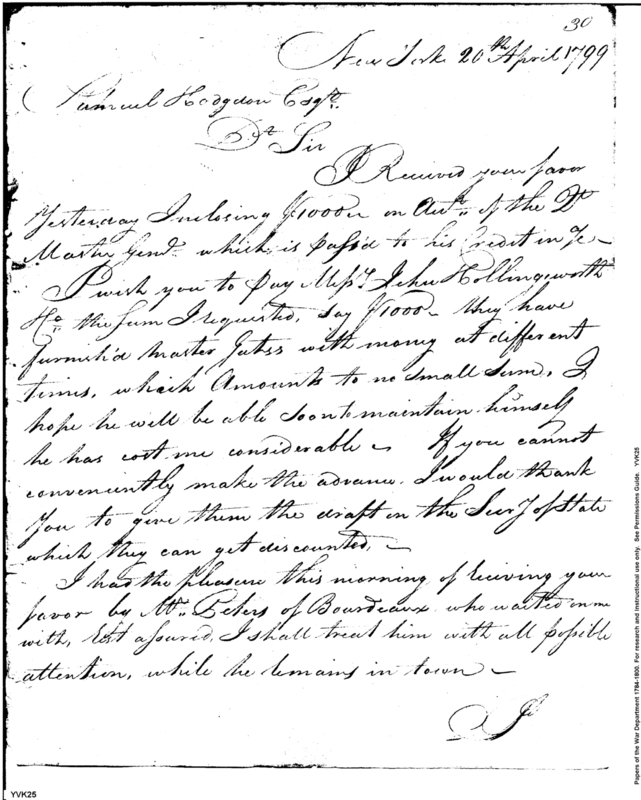 30
New York 20th April 1799
Samuel Hodgdon Esqr.
Dr. Sir
I Received your favor
Yesterday Inclosing $1000 on Acct. of the Qr
Master Genl. which is pass'd to his Credit in
I wish you to pay Messrs. John Hollingsworth
& Co. the Sum I requested, say $1000 they have
furnish'd Master with money at different
times, which Amounts to no small sum, I
hope he will be able soon to maintain himself
he has cost me considerable If you cannot
conveniently make the advance. I would thank
You to give them the draft on the Secry of State
which they can get discounted.
I had the pleasure this morning of Receiving your
favor by Mr. Peters of Bourdeaux who waited on me
with, Rest assured, I shall treat him with all possible
attention, while he remains in town
Papers of the War Department 1784-1800. For research and instructional use only. See Permissions Guide. YVK25
YVK25